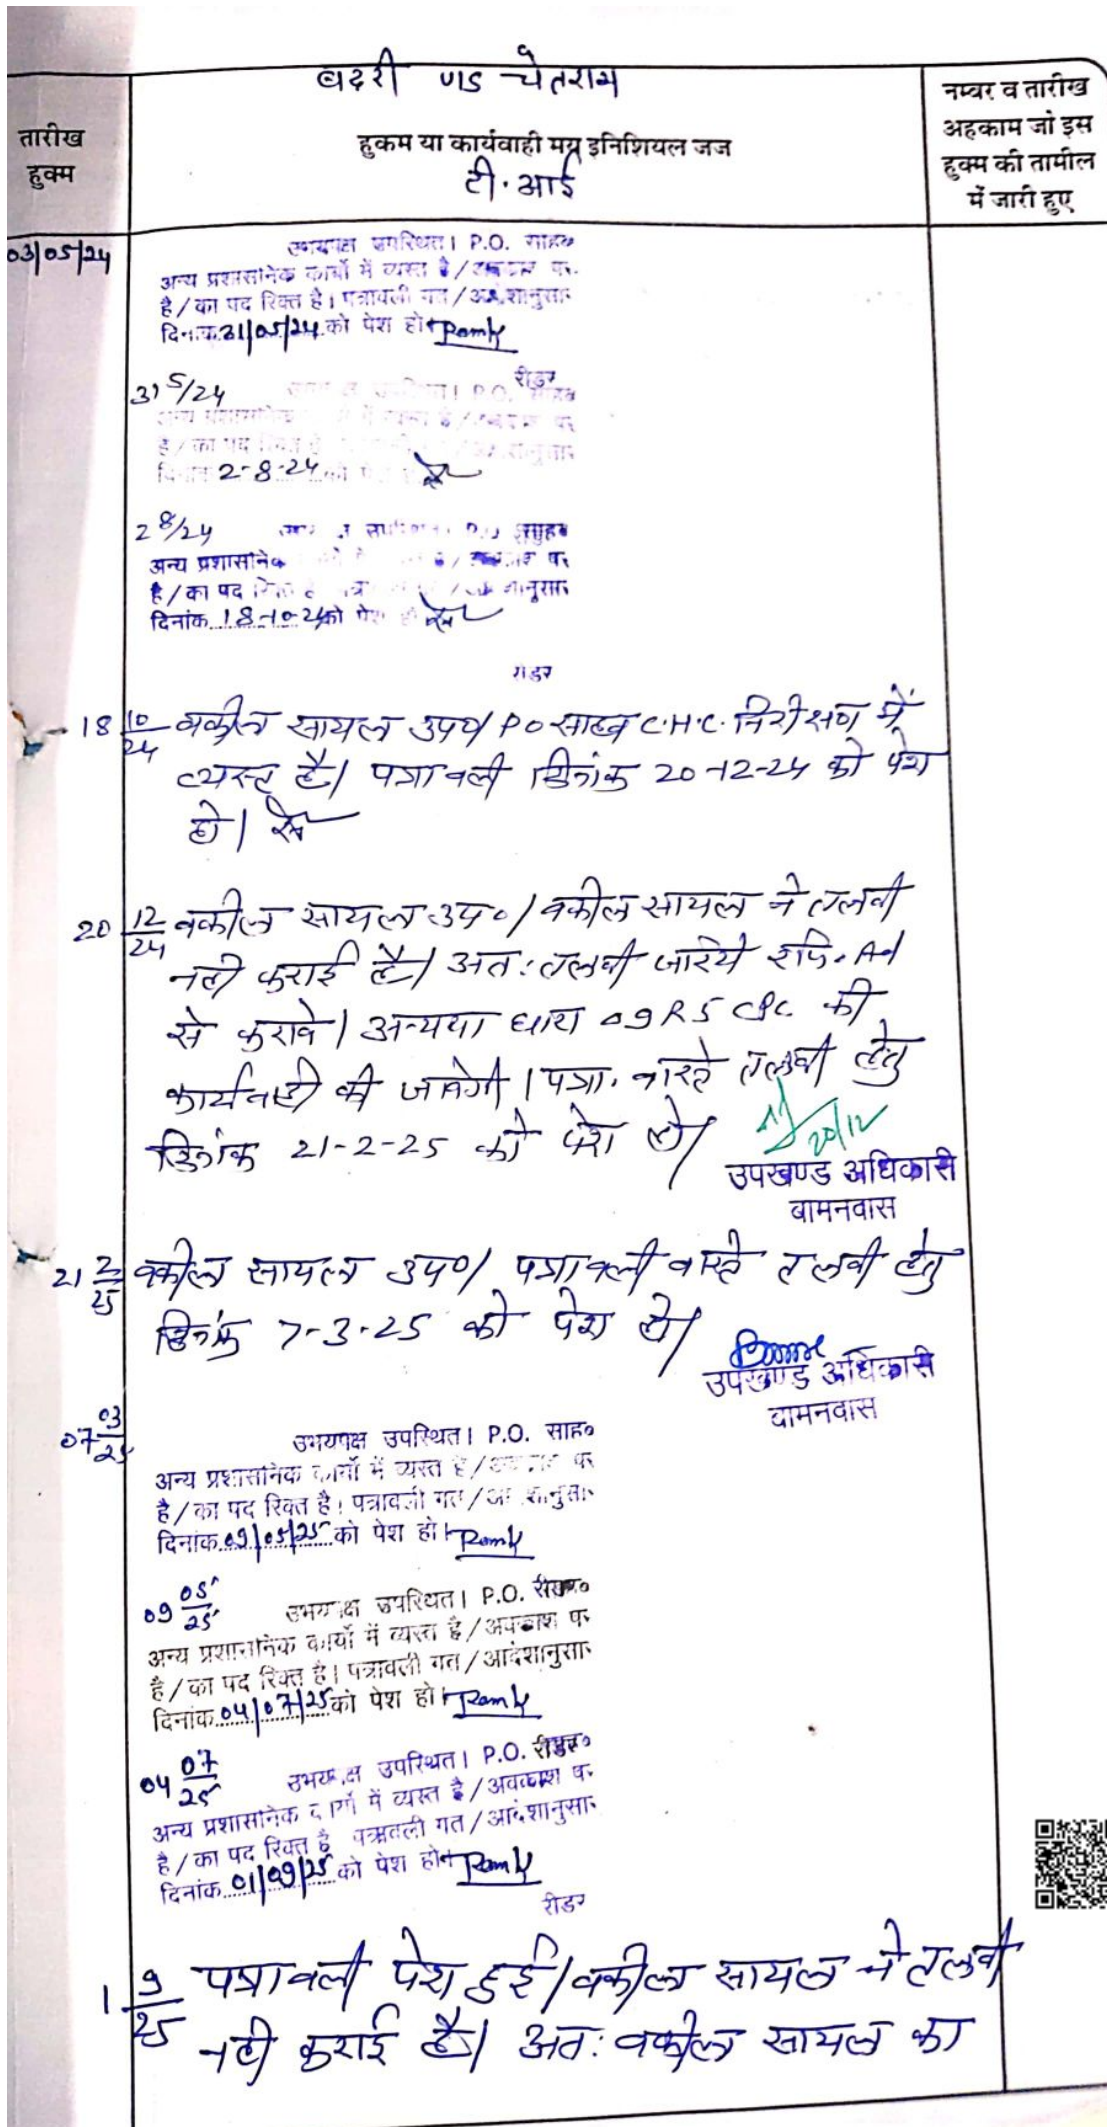 बदरी v/s चेतराम
तारीख
हुक्म
हुकम या कार्यवाही मय इनिशियल जज
टी. आई
नम्बर व तारीख
अहकाम जो इस
हुक्म की तामील
में जारी हुए
03/05/24
उभयपक्ष उपस्थित। P.O. साहब
अन्य प्रशासनिक कार्यो में व्यस्त है/अवकाश पर
है/का पद रिक्त है। पत्रावली गत/आदेशानुसार
दिनांक 31/05/24 को पेश हो।
रीडर
31 5/24
P.O. साहब
दिनांक 2-8-24 को
2 8/24
अन्य प्रशासनिक
है/का पद
दिनांक 18-10-24 को पेश हो
रीडर
18 10/24 वकील सायल उप०/ PO साहब C.H.C. निरीक्षण में
व्यस्त है। पत्रावली दिनांक 20-12-24 को पेश
हो।
20 12/24 वकील सायल उप०/ वकील सायल ने तलबी
नही कराई है। अत: तलबी जरिये रजि. AD
से करावे। अन्यथा धारा 09 R5 CPC की
कार्यवाही की जावेगी। पत्रा. वास्ते तलबी हेतु
दिनांक 21-2-25 को पेश हो।
20/12
उपखण्ड अधिकारी
बामनवास
21 2/25 वकील सायल उप०/ पत्रावली वास्ते तलबी हेतु
दिनांक 7-3-25 को पेश हो।
उपखण्ड अधिकारी
बामनवास
07 03/25
उभयपक्ष उपस्थित। P.O. साह०
अन्य प्रशासनिक कार्यो में व्यस्त है/अवकाश पर
है/का पद रिक्त है। पत्रावली गत/आदेशानुसार
दिनांक 09/05/25 को पेश हो।
09 05/25 उभयपक्ष उपस्थित। P.O.
अन्य प्रशासनिक कार्यो में व्यस्त है/अवकाश पर
है/का पद रिक्त है। पत्रावली गत/आदेशानुसार
दिनांक 04/07/25 को पेश हो।
04 07/25 उभयपक्ष उपस्थित। P.O.
अन्य प्रशासनिक कार्यो में व्यस्त है/अवकाश पर
है/का पद रिक्त है पत्रावली गत/आदेशानुसार
दिनांक 01/09/25 को पेश हो
रीडर
1 9/25 पत्रावली पेश हुई। वकील सायल ने तलबी
नही कराई है। अत: वकील सायल का